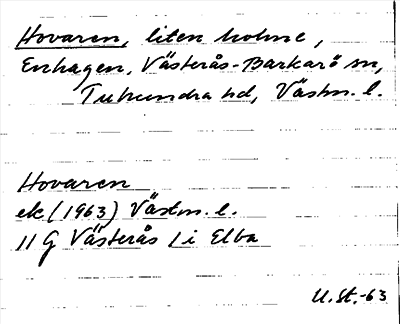 Hovaren, liten holme,
Enhagen, Västerås-Barkarö sn,
Tuhundra hd, Västm. l.
Hovaren
ek (1963) Västm. l.
11 G Västerås / i Elba
U. St. -63